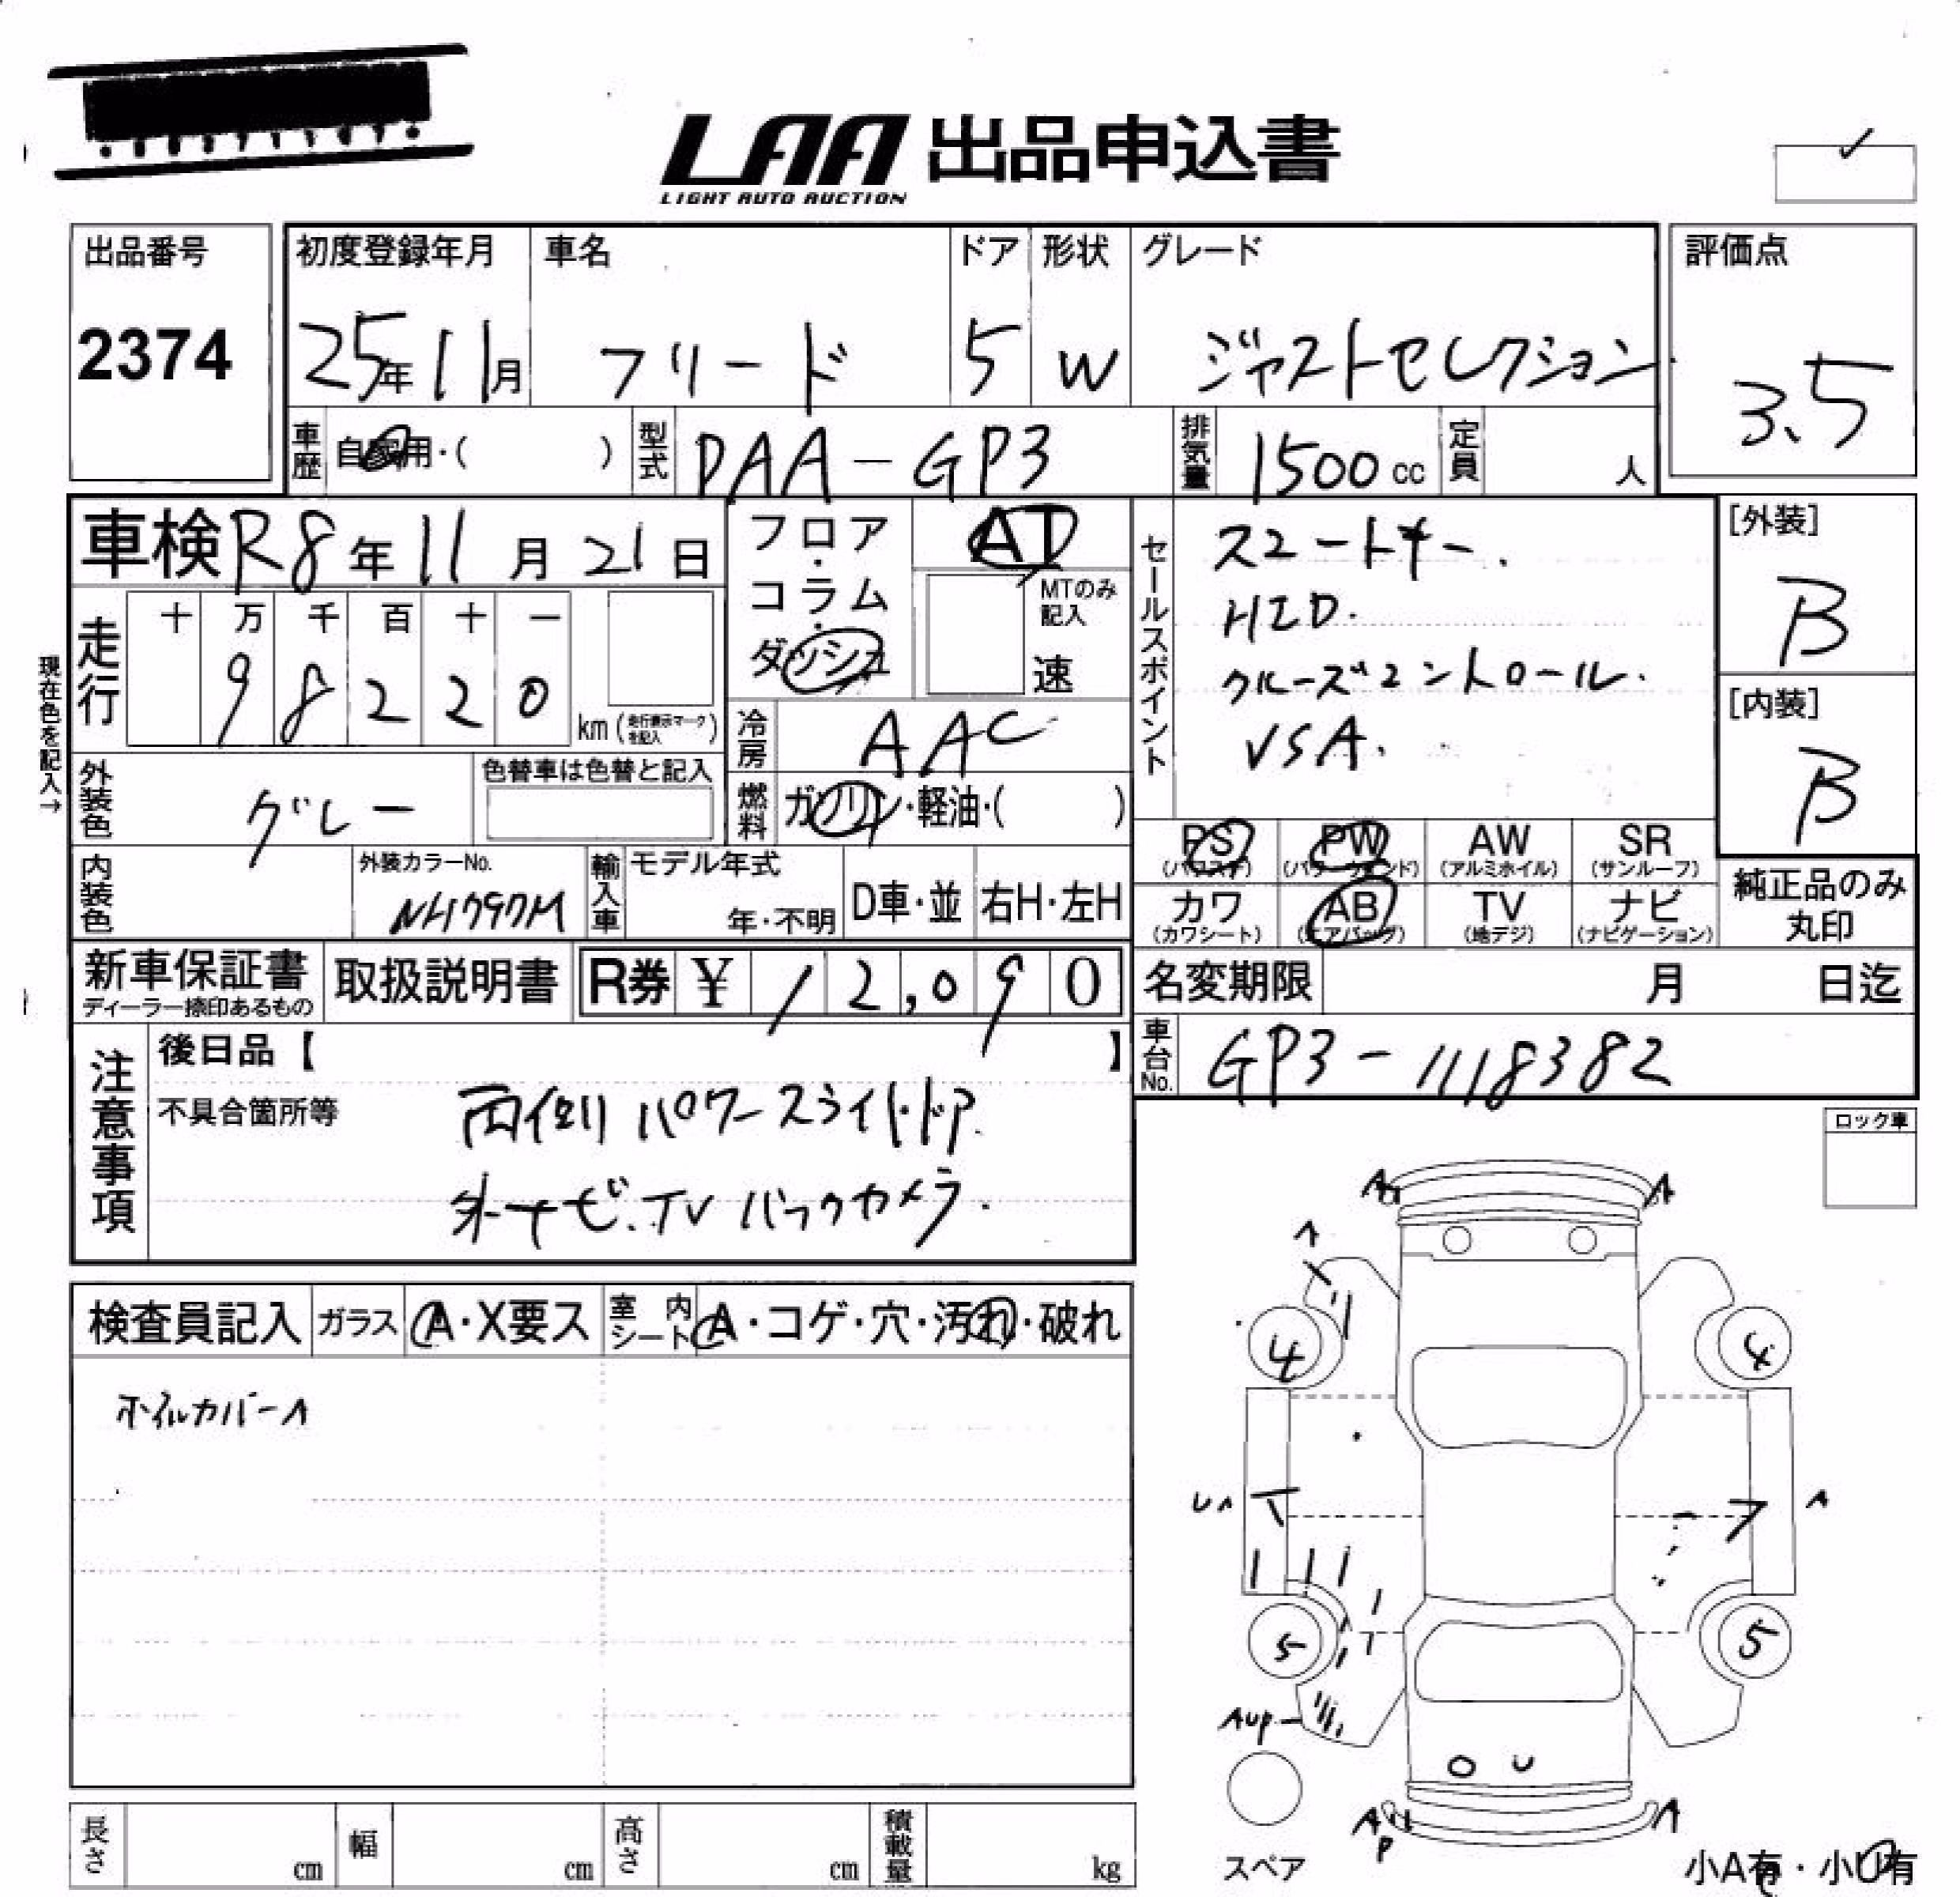 LAA 出品申込書
LIGHT AUTO AUCTION
出品番号
2374
初度登録年月
25年11月
車名
フリード
ドア
5
形状
W
グレード
ジャストセレクション
評価点
3.5
車歴
自家用・( )
型式
DAA-GP3
排気量
1500 cc
定員
人
車検 R8年11月21日
走行
十 万 千 百 十 一
9 8 2 2 0
km (走行表示マークを記入)
現在色を記入→
フロア・コラム・ダッシュ
AT
MTのみ記入
速
冷房
AAC
燃料
ガソリン・軽油・( )
セールスポイント
スマートキー.
HID.
クルーズコントロール.
VSA.
[外装]
B
[内装]
B
外装色
グレー
色替車は色替と記入
内装色
外装カラーNo.
NH797M
輸入車
モデル年式
年・不明
D車・並
右H・左H
PS
(パワステ)
PW
(パワーウインド)
AW
(アルミホイル)
SR
(サンルーフ)
カワ
(カワシート)
AB
(エアバッグ)
TV
(地デジ)
ナビ
(ナビゲーション)
純正品のみ
丸印
新車保証書
ディーラー捺印あるもの
取扱説明書
R券 ¥ 12,090
名変期限
月 日迄
車台No.
GP3-1118382
注意事項
後日品【 】
不具合箇所等
両側パワースライドドア
外ナビ.TV バックカメラ.
ロック車
検査員記入
ガラス
A・X要ス
室内シート
A・コゲ・穴・汚れ・破れ
ホイルカバーA
A A
A
4 4
UA A
5 5
AUP
A P A
スペア
小A有・小U有
長さ cm
幅 cm
高さ cm
積載量 kg